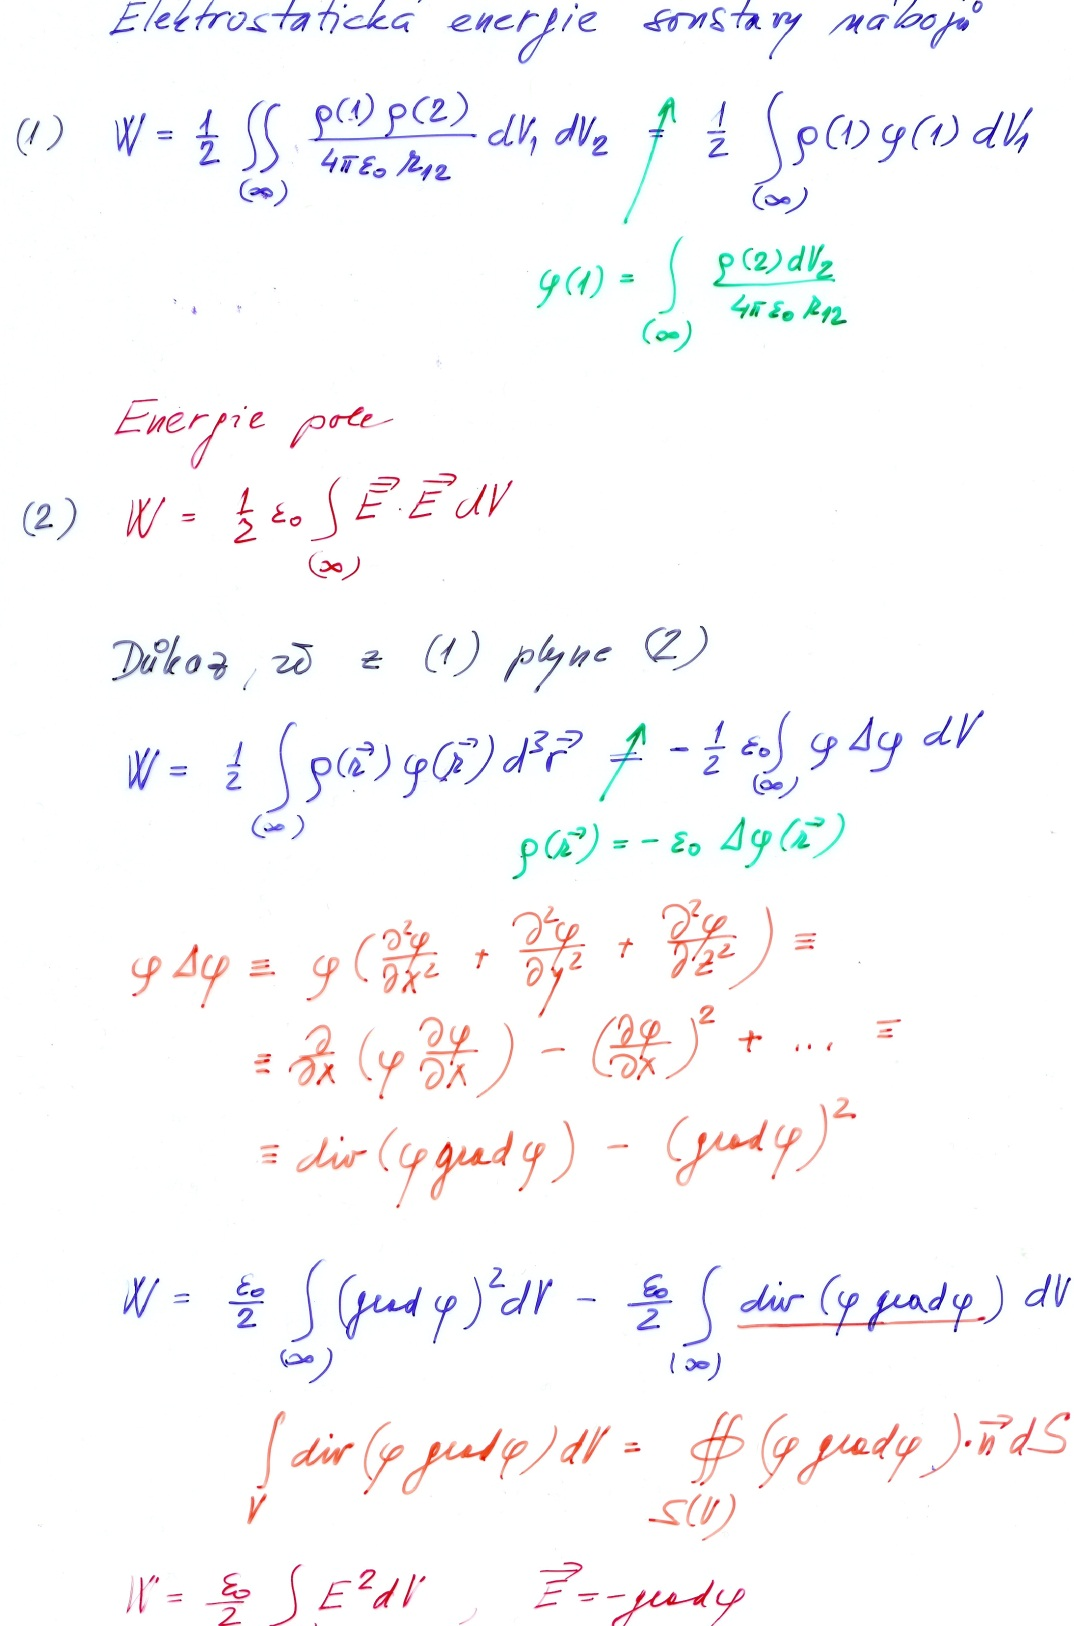 Elektrostatická energie soustavy nábojů
(1) W = 1/2 ∬_(∞) ρ(1) ρ(2) / 4πε₀ r₁₂ dV₁ dV₂ = 1/2 ∫_(∞) ρ(1) φ(1) dV₁
φ(1) = ∫_(∞) ρ(2) dV₂ / 4πε₀ r₁₂
Energie pole
(2) W = 1/2 ε₀ ∫_(∞) E⃗ · E⃗ dV
Důkaz, že z (1) plyne (2)
W = 1/2 ∫_(∞) ρ(r⃗) φ(r⃗) d³r⃗ = − 1/2 ε₀ ∫_(∞) φ Δφ dV
ρ(r⃗) = − ε₀ Δφ(r⃗)
φ Δφ ≡ φ (∂²φ/∂x² + ∂²φ/∂y² + ∂²φ/∂z²) ≡
≡ ∂/∂x (φ ∂φ/∂x) − (∂φ/∂x)² + ... ≡
≡ div (φ grad φ) − (grad φ)²
W = ε₀/2 ∫_(∞) (grad φ)² dV − ε₀/2 ∫_(∞) div (φ grad φ) dV
∫_V div (φ grad φ) dV = ∯_S(V) (φ grad φ) · n⃗ dS
W = ε₀/2 ∫ E² dV , E⃗ = − grad φ